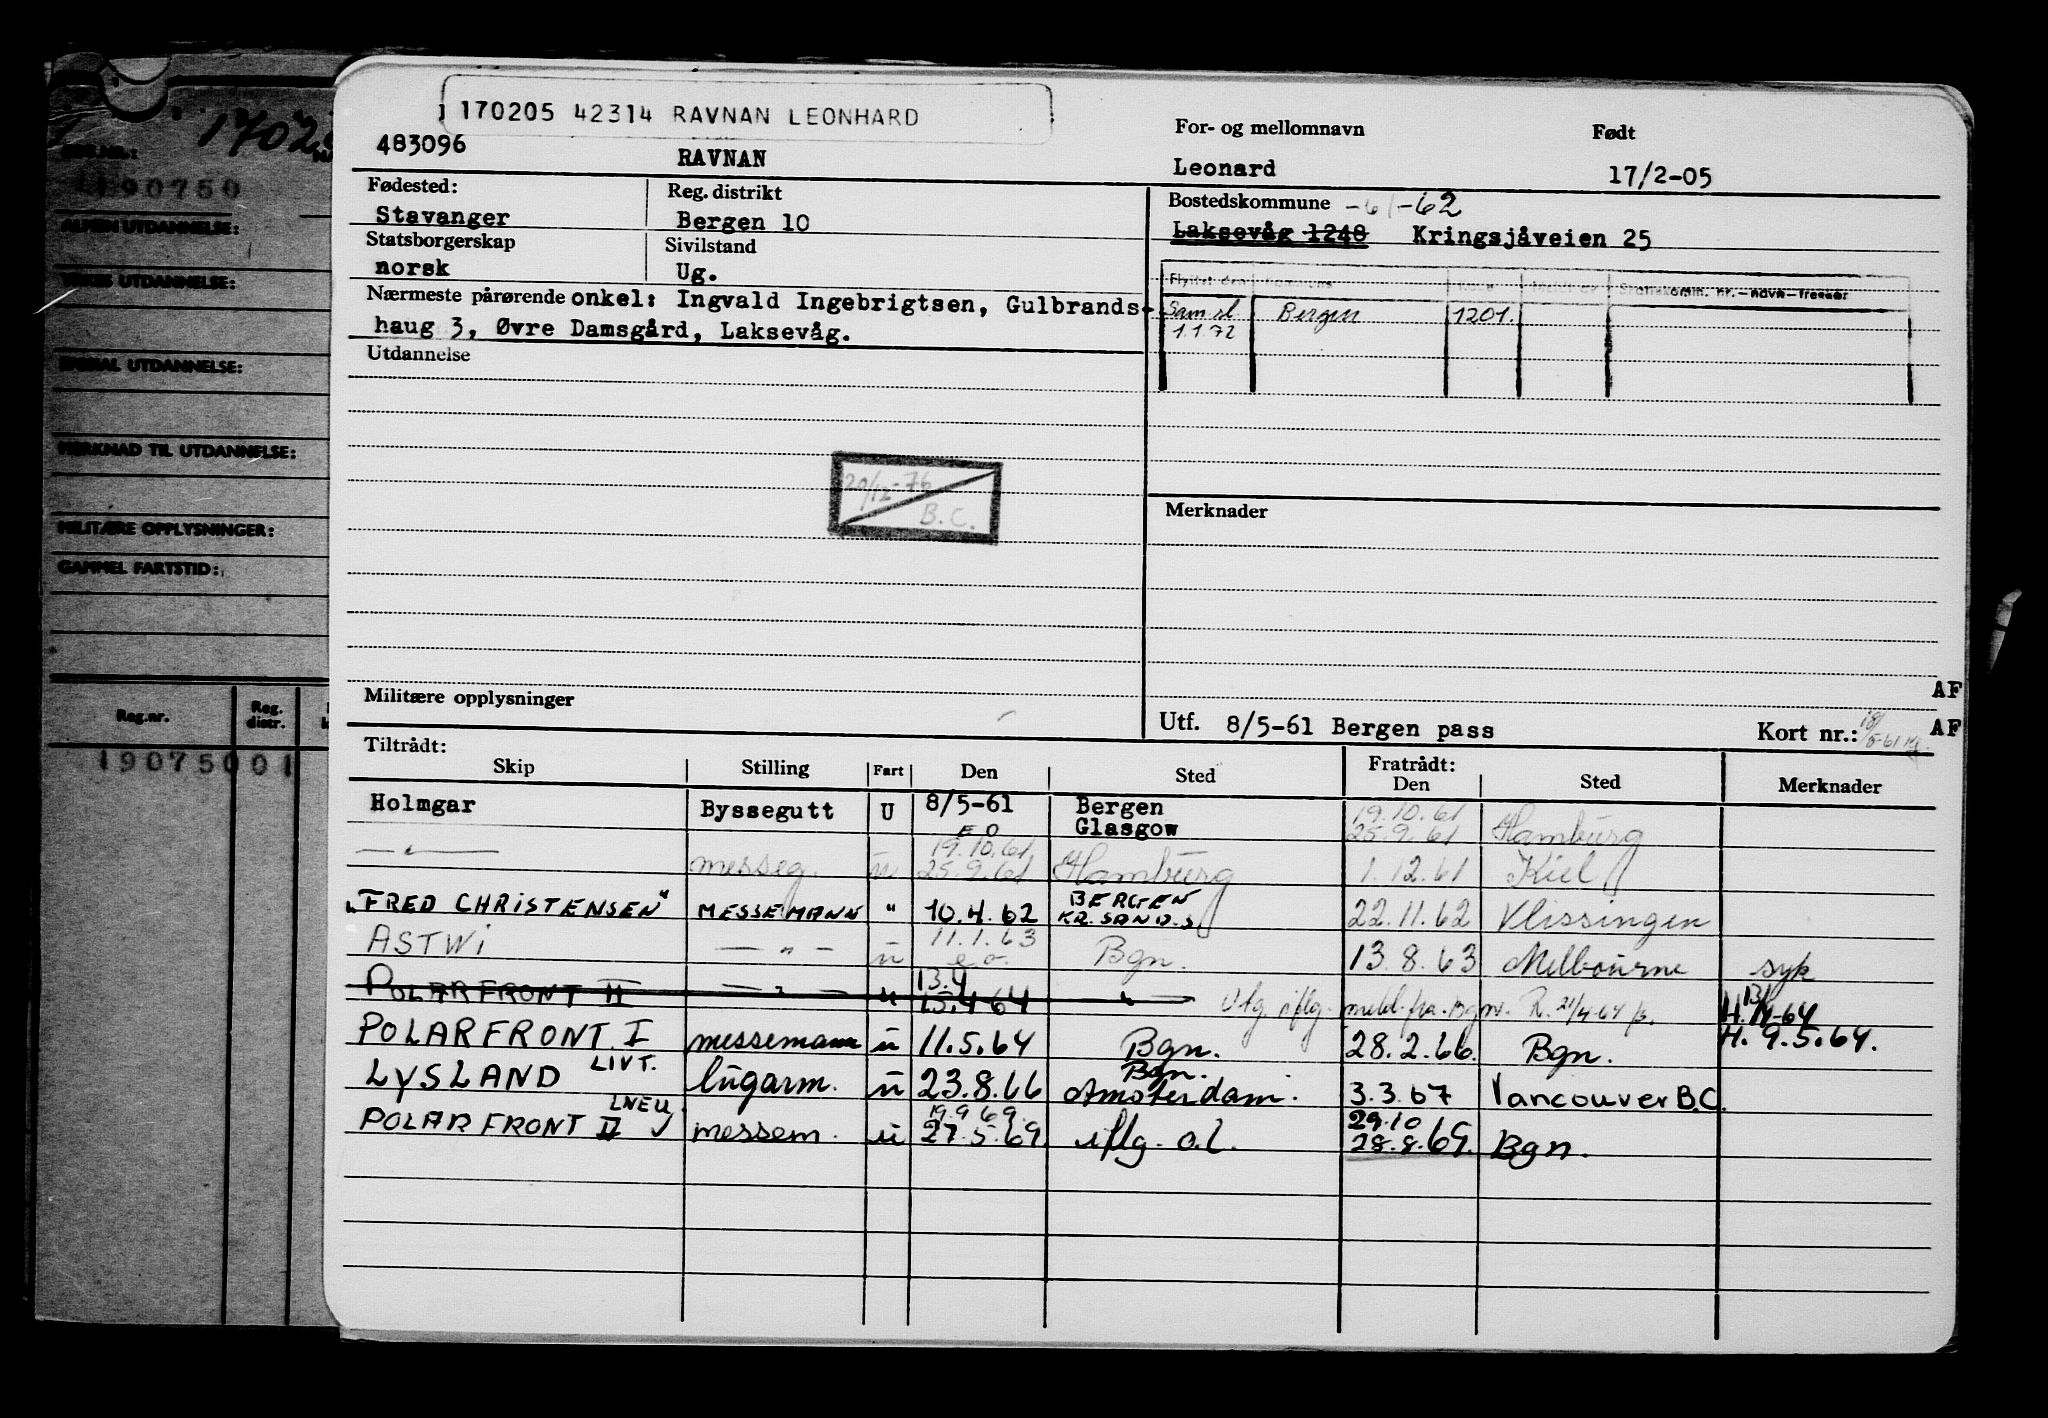 170205 42314 RAVNAN LEONHARD
483096
RAVNAN
For- og mellomnavn
Født
Leonard
17/2-05
Fødested:
Stavanger
Reg. distrikt
Bergen 10
Statsborgerskap
norsk
Sivilstand
Ug.
Nærmeste pårørende onkel: Ingvald Ingebrigtsen, Gulbrands-
haug 3, Øvre Damsgård, Laksevåg.
Utdannelse
Bostedskommune -61-62
Laksevåg 1248 Kringsjåveien 25
Flyttet den
Sam sl. Bergen 1201.
1.1.72
29/12-76
B.C.
Merknader
Militære opplysninger
AF
Utf. 8/5-61 Bergen pass
Kort nr.:
AF
Tiltrådt: Fratrådt:
Skip Stilling Fart Den Sted Den Sted Merknader
Holmgar Byssegutt U 8/5-61 Bergen 19.10.61
Glasgow 25.9.61 Hamburg
F O
19.10.61
— " — messeg. u 25.9.61 Hamburg 1.12.61 Kiel
"FRED CHRISTENSEN" MESSEMANN " 10.4.62 BERGEN KR.SAND.S 22.11.62 Vlissingen
11.1.63
ASTWI — " — u e o. Bgn. 13.8.63 Melbourne syk
13.4
POLARFRONT II — " — " 15.4.64 — " — Utg. iflg. meld. fra Bgn. R. 21/4-64 H. 13/4-64
POLARFRONT I messemann u 11.5.64 Bgn. 28.2.66. Bgn. H. 9.5.64.
LIVT. Bgn.
LYSLAND lugarm. u 23.8.66 Amsterdam. 3.3.67 Vancouver B.C.
LNEU 19.9 69. 29.10
POLARFRONT II messem. u 27.5.69. iflg. o.l. 28.8.69. Bgn.
1702
190750
ALMEN UTDANNELSE:
YRKES UTDANNELSE:
SPESIAL UTDANNELSE:
MERKNAD TIL UTDANNELSE:
MILITÆRE OPPLYSNINGER:
GAMMEL FARTSTID:
Reg.nr.
Reg. distr.
19075001